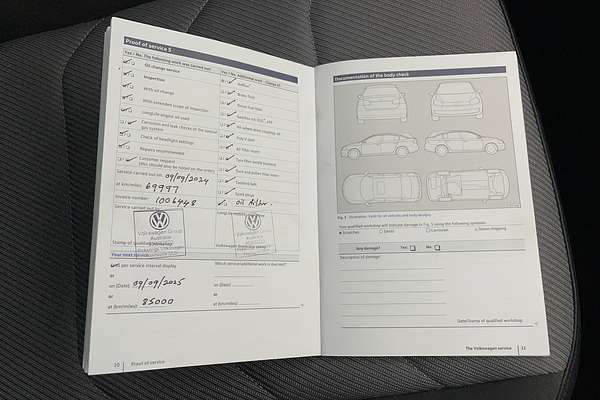 Proof of service 5
Yes / No: The following work was carried out:
Oil change service
Inspection
With oil change
With extended scope of inspection
LongLife engine oil used
Corrosion and leak checks of the natural
gas system
Check of headlight settings
Repairs recommended
Customer request
(this should also be noted on the order)
Service carried out on: 09/09/2024
at km/miles): 69997
Invoice number: 1006448
Service carried out by:
Volkswagen Group
Australia
Stamp of qualified workshop
Your next service
as per service interval display
or
on (Date): 09/09/2025
or
at (km/miles): 85000
20 Proof of service
Yes / No: Additional work – Change of:
Brake fluid
Diesel fuel filter
Poly V-belt
Air filter insert
Dust and pollen filter insert
Toothed belt
Spark plugs
oil filter.
Which service/additional work is due next?
on (Date):
or
at (km/miles):
Documentation of the body check
Your qualified workshop will indicate damage in Fig. 1 using the following symbols:
Scratches
Dents
Corrosion
Stone chipping
Any damage?
Yes:
No:
Description of damage:
Date/Stamp of qualified workshop:
The Volkswagen service 21